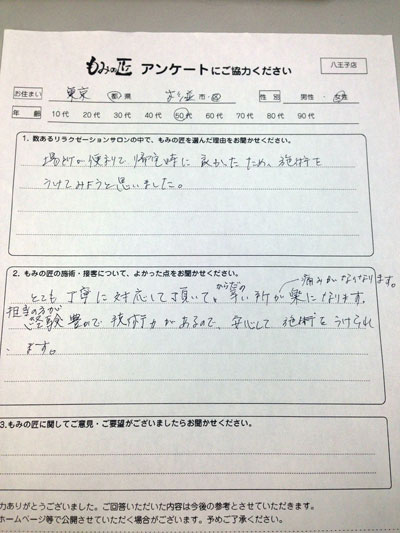 もみの匠 アンケートにご協力ください
八王子店
お住まい 東京 都 県 市・区 性別 男性・女性
年齢 10代 20代 30代 40代 50代 60代 70代 80代 90代
1. 数あるリラクゼーションサロンの中で、もみの匠を選んだ理由をお聞かせください。
場所が便利で帰宅時に良かったため、施術を
うけてみようと思いました。
2. もみの匠の施術・接客について、よかった点をお聞かせください。
痛みがなくなります。
とても丁寧に対応して頂いて、からだの辛い所が楽になります。
担当の方が
経験豊かで技術力があるので、安心して施術をうけられ
ます。
3.もみの匠に関してご意見・ご要望がございましたらお聞かせください。
力ありがとうございました。ご回答いただいた内容は今後の参考とさせていただきます。
ホームページ等で公開させていただく場合がございます。予めご了承ください。